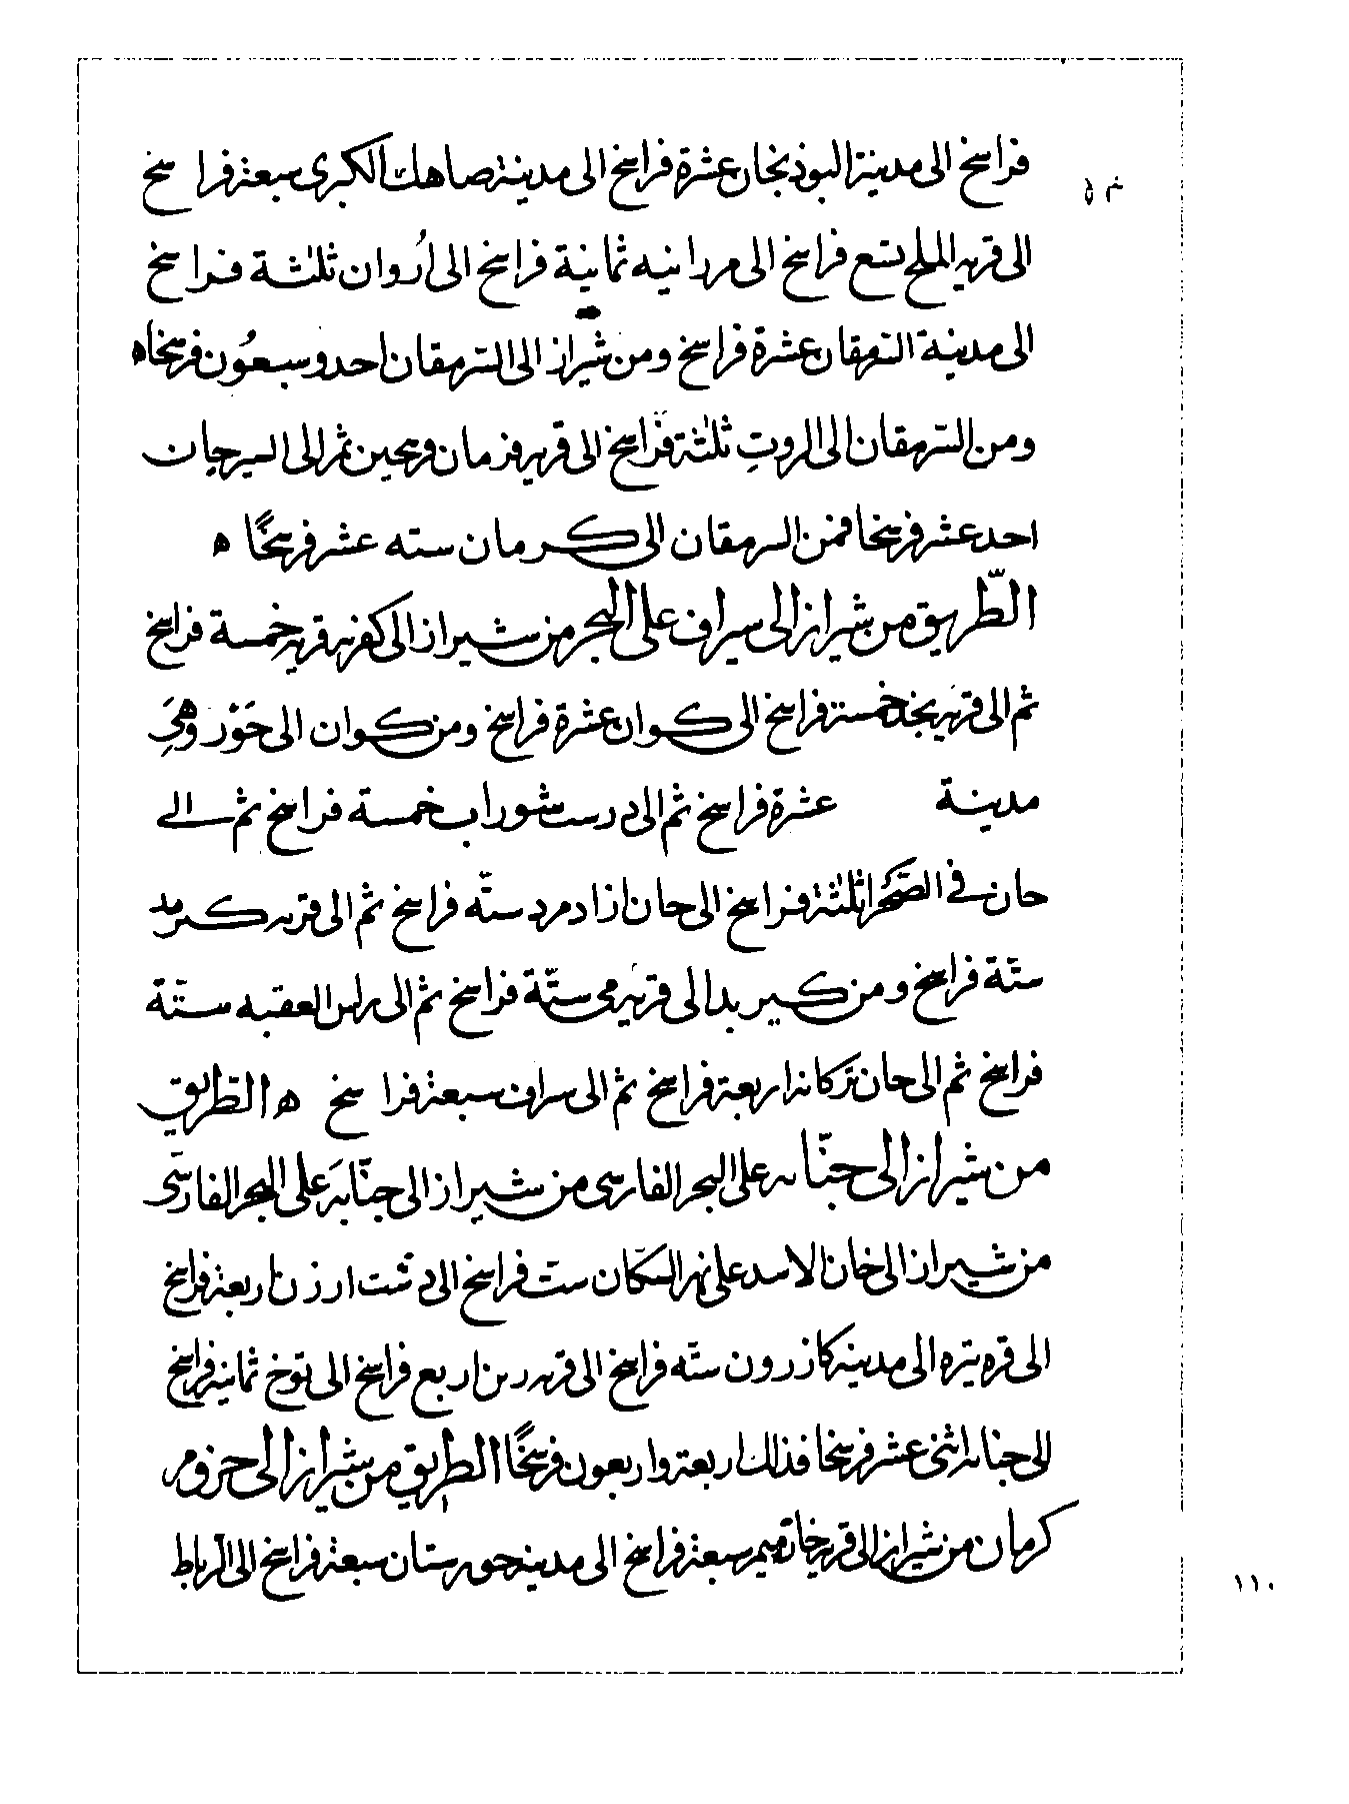 فراسخ الى مدينة البوذنجان عشرة فراسخ الى مدينة صاهك الكبرى سبعة فراسخ
الى قريه الملح تسع فراسخ الى مردانيه ثمانية فراسخ الى اُروان ثلثة فراسخ
الى مدينة الترمقان عشرة فراسخ ومن شيراز الى الترمقان احد وسبعُون فرسخا ه
ومن الترمقان الى الروتِ ثلثة فراسخ الى قريه فزمان فرسخين ثم الى السيرجان
احد عشر فرسخا فمن الرمقان الى كرمان سته عشر فرسخًا ه
الطّريق من شيراز الى سيراف على البحر من شيراز الى كفره قريه خمسة فراسخ
ثم الى قريه بخذ خمسة فراسخ الى كوان عشرة فراسخ ومن كوان الى جَوْر وهِيَ
مدينة عشرة فراسخ ثم الى درست شوراب خمسة فراسخ ثم الى
حان في الصَّحرا ثلثة فراسخ الى حان ازادمرد ستّه فراسخ ثم الى قريه كيريد
ستّة فراسخ ومن كيريد الى قريه مى ستّة فراسخ ثم الى راس العقبه ستّة
فراسخ ثم الى حان تركانه اربعة فراسخ ثم الى سراف سبعة فراسخ ه الطّريق
من شيراز الى جنّابه على البحر الفارسى من شيراز الى جنّابَه على البحر الفارسّى
من شيراز الى خان الاسد على نهر السكّان ستّ فراسخ الى دشت ارزن اربعة فراسخ
الى قره يتره الى مدينه كازرون ستّه فراسخ الى قريه درىن اربع فراسخ الى توّخ ثمانيه فراسخ
الى جنابه اثنى عشر فرسخا فذلك اربعة واربعون فرسخًا الطريق من شيراز الى جزوم
كرمان من شيراز الى قريه خان ميم سبعة فراسخ الى مدينه حورستان سبعة فراسخ الى الرباط
١١٠